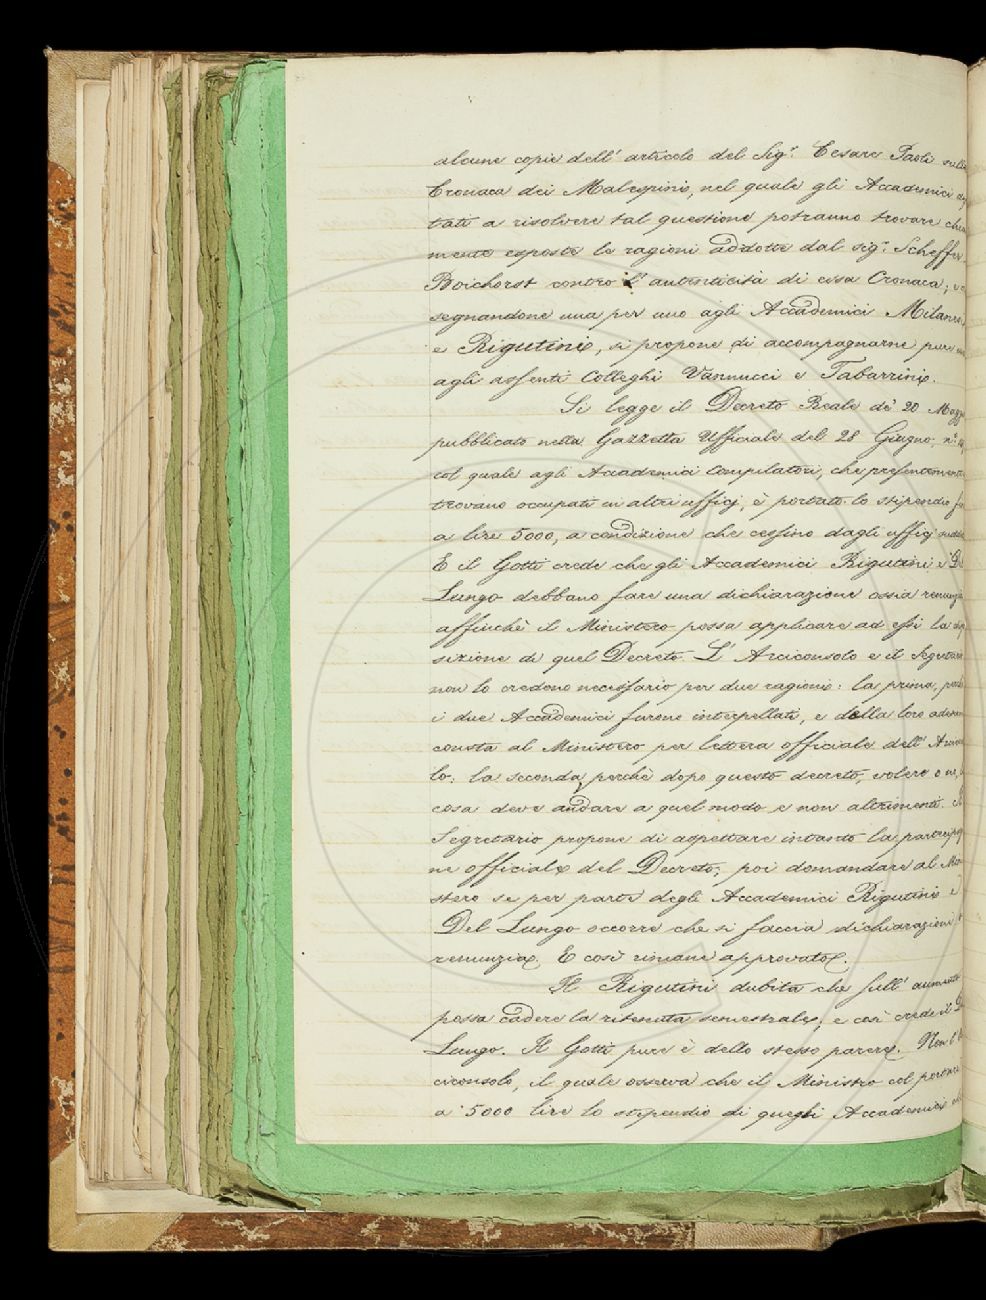 alcune copie dell' articolo del Sig.r Cesare Paoli sulla
Cronaca dei Malespini, nel quale gli Accademici
tati a risolvere tal questione potranno trovare chia
mente esposte le ragioni addotte dal sig.r Scheffer
Boichorst contro l' autenticità di essa Cronaca; e
segnandone una per uno agli Accademici Milanesi
e Rigutini, si propone di accompagnarne pure
agli assenti Colleghi Vannucci e Tabarrini.
Si legge il Decreto Reale de' 20 Magg
pubblicato nella Gazzetta Ufficiale del 28 Giugno, n.o
col quale agli Accademici Compilatori, che presentemente
trovano occupati in altri ufficj, è portato lo stipendio
a lire 5000, a condizione che cessino dagli ufficj
E il Gotti crede che gli Accademici Rigutini e Del
Lungo debbano fare una dichiarazione ossia renunzia
affinchè il Ministero possa applicare ad essi la
sizione di quel Decreto. L' Arciconsolo e il Segretario
non lo credono necessario per due ragioni: la prima, perchè
i due Accademici furono interpellati, e della loro adesione
consta al Ministero per lettera officiale dell' Arciconso
lo: la seconda, perchè dopo questo decreto, volere o no,
cosa deve andare a quel modo e non altrimenti. Il
Segretario propone di aspettare intanto la partecipazio
ne officiale del Decreto; poi domandare al Mini
stero se per parte degli Accademici Rigutini e
Del Lungo occorre che si faccia dichiarazione
renunzia. E così rimane approvato.
Il Rigutini dubita che sull' aumento
possa cadere la ritenuta semestrale, e così crede il Del
Lungo. Il Gotti pure è dello stesso parere. Non l' Ar
ciconsolo, il quale osserva che il Ministro col portare
a 5000 lire lo stipendio di quegli Accademici